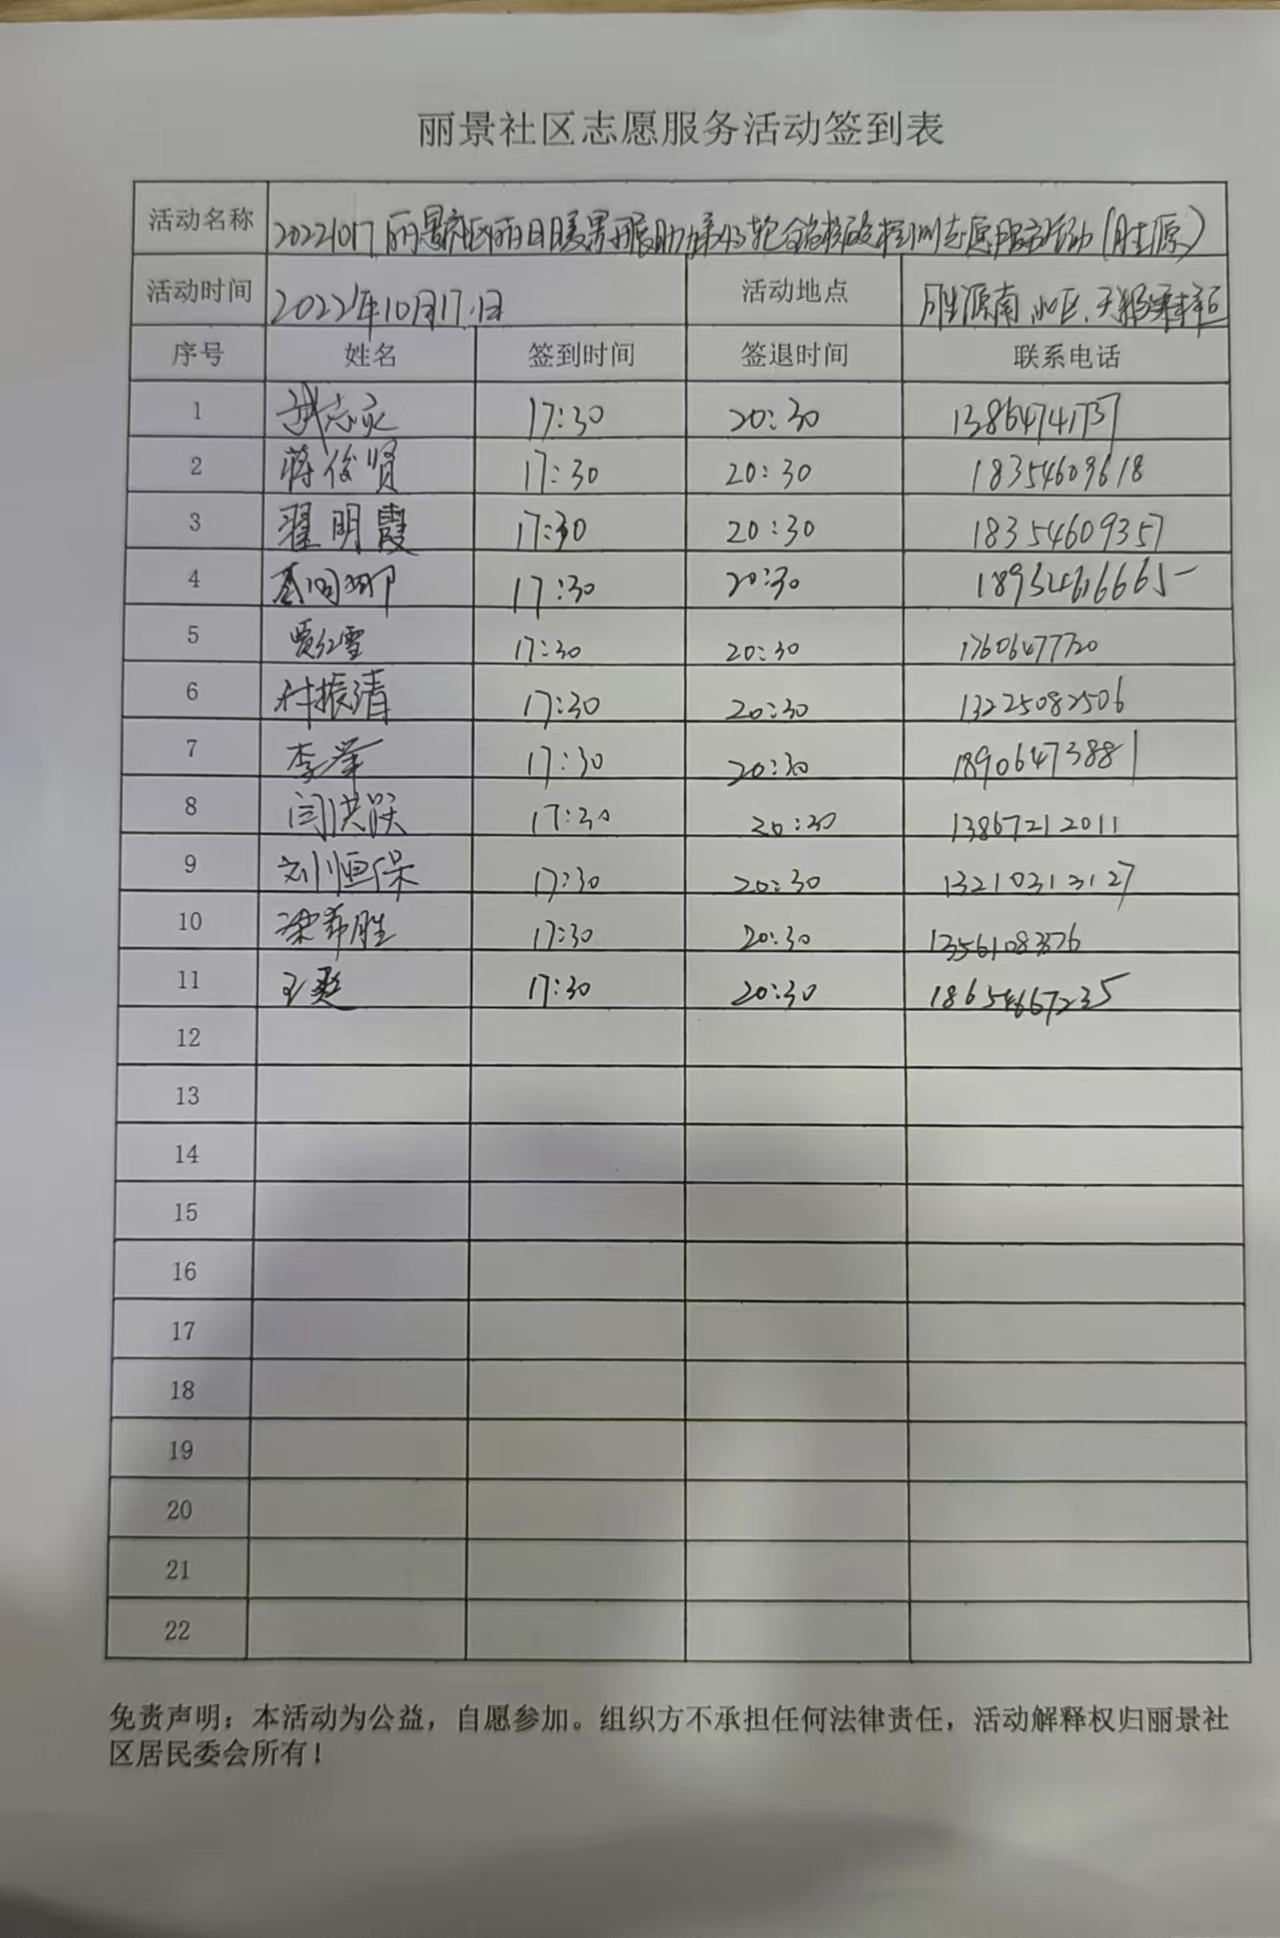 丽景社区志愿服务活动签到表
活动名称 20221017丽景社区丽日暖景开展助力第43轮全员核酸检测志愿服务活动(胜源)
活动时间 2022年10月17日 活动地点 胜源南、北区、天翔
序号 姓名 签到时间 签退时间 联系电话
1 17:30 20:30 13864741737
2 蒋俊贤 17:30 20:30 18354609618
3 翟明霞 17:30 20:30 18354609357
4 17:30 20:30 18954616665
5 贾红雪 17:30 20:30 17606477720
6 振清 17:30 20:30 13225082506
7 李举 17:30 20:30 18906473881
8 闫洪跃 17:30 20:30 13867212011
9 刘恒保 17:30 20:30 13210313127
10 梁希胜 17:30 20:30 13561083376
11 王爽 17:30 20:30 18654667235
12
13
14
15
16
17
18
19
20
21
22
免责声明：本活动为公益，自愿参加。组织方不承担任何法律责任，活动解释权归丽景社
区居民委会所有！